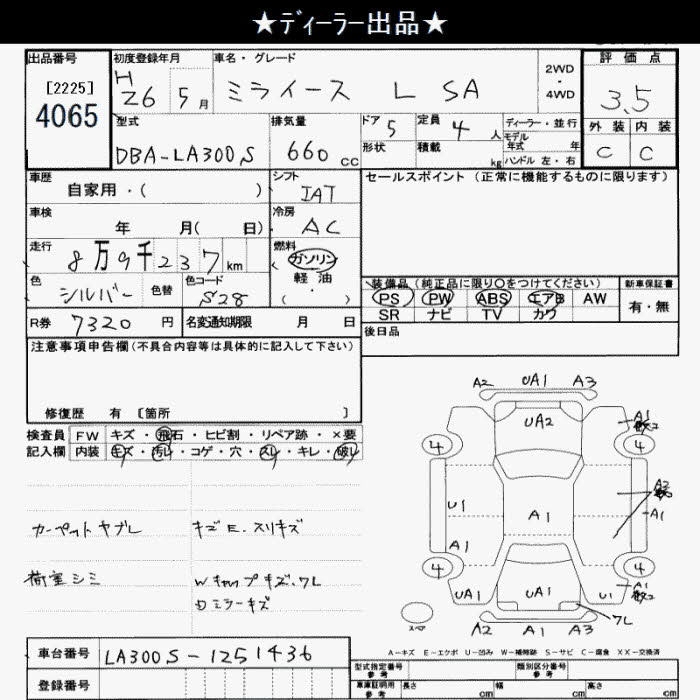 ★ディーラー出品★
出品番号 初度登録年月 車名・グレード 2WD・4WD 評価点
[2225] H 26 5月 ミライース L SA 3.5
4065 型式 排気量 ドア 5 定員 4人 ディーラー・並行 外装 内装
DBA-LA300S 660cc 形状 積載 kg モデル年式 年 C C
ハンドル 左・右
車歴 自家用・( ) シフト IAT セールスポイント(正常に機能するものに限ります)
車検 年 月( 日) 冷房 AC
走行 8万9千237km 燃料 ガソリン
軽油
・( )
色 シルバー 色替 色コード S28 装備品(純正品に限り○をつけてください) 新車保証書
PS PW ABS エアB AW 有・無
SR ナビ TV カワ
R券 7320円 名変通知期限 月 日 後日品
注意事項申告欄(不具合内容等は具体的に記入して下さい)
修復歴 有 [箇所 ]
検査員 FW キズ・飛石・ヒビ割・リペア跡・×要
記入欄 内装 キズ・汚れ・コゲ・穴・スレ・キレ・破レ
カーペットヤブレ キズE.スリキズ
荷室シミ Wキャップキズ.ワレ
Dミラーキズ
A2 UA1 A3
UA2 A1
4 4
U1 A1 A1
A1
4 4
UA1 UA1 U1 A1
ワレ
スペア A2 A1 A3
A-キズ E-エクボ U-凹み W-補修跡 S-サビ C-腐食 XX-交換済
車台番号 LA300S-1251436
登録番号
型式指定番号 参考 類別区分番号 参考
車庫証明用 参考 長さ cm 幅 cm 高さ cm